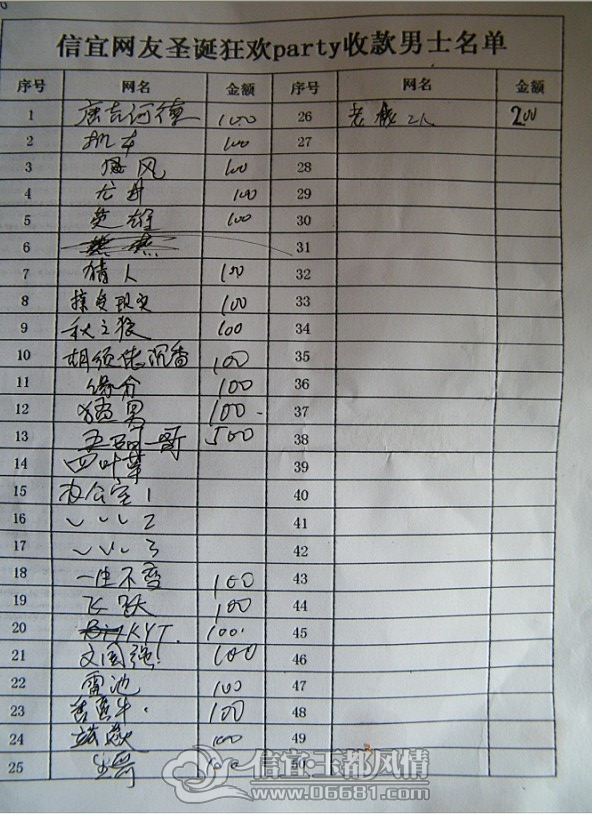 信宜网友圣诞狂欢party收款男士名单
序号 网名 金额 序号 网名 金额
1 唐吉诃德 100 26 2人 200
2 机车 100 27
3 风 100 28
4 龙井 100 29
5 英雄 100 30
6 31
7 猜人 100 32
8 接受现实 100 33
9 秋之狼 100 34
10 胡须佬沉香 100 35
11 缘分 100 36
12 猛男 100 37
13 一哥 500 38
14 四叶草 39
15 办公室1 40
16 〃〃〃2 41
17 〃〃〃3 42
18 一生不变 100 43
19 飞跃 100 44
20 KYT. 100 45
21 文国强 100 46
22 雷池 100 47
23 100 48
24 100 49
25 100 50
信宜·玉都风情
www.06681.com